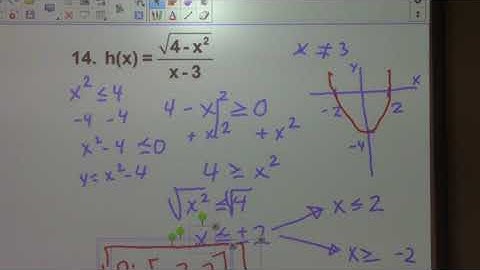 14. h(x) = √(4-x²) / (x-3)
x ≠ 3
x² ≤ 4
-4 -4
x² - 4 ≤ 0
y = x² - 4
4 - x² ≥ 0
+ x² + x²
4 ≥ x²
√x² ≤ √4
x ≤ ± 2
x ≤ 2
x ≥ -2
y
x
-2
2
-4